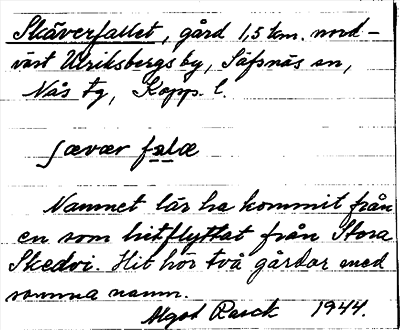 Skäverfallet, gård 1,5 km. nord-
väst Ulriksbergs by, Säfsnäs sn,
Nås tg, Kopp. l.
ʃævær falæ
Namnet lär ha kommit från
en som hitflyttat från Stora
Skedvi. Hit hör två gårdar med
samma namn.
Algot Rasck 1944.